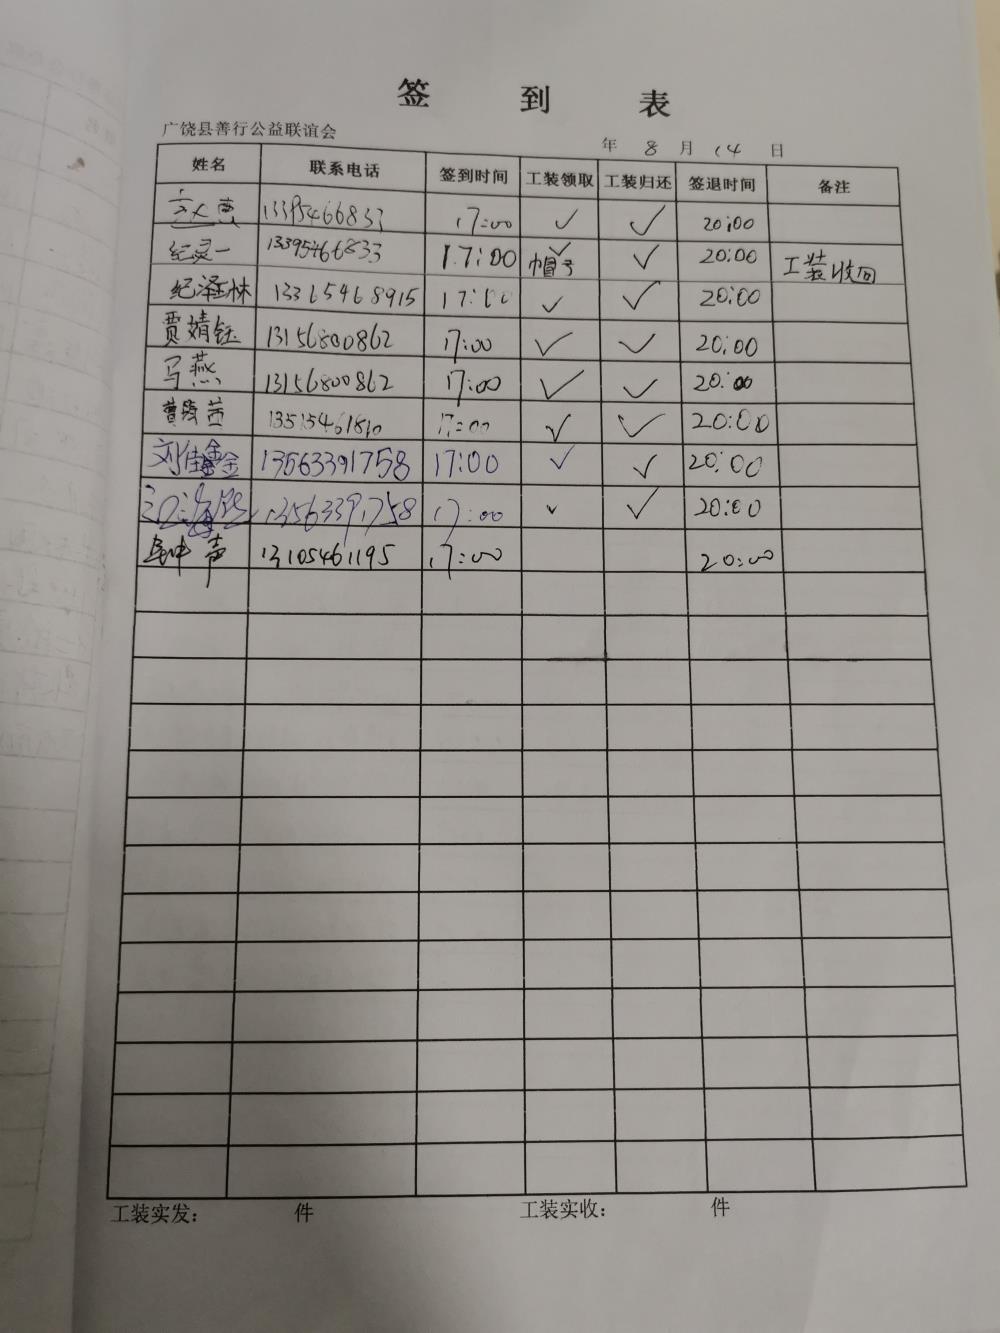 签 到 表
广饶县善行公益联谊会 年 8 月 14 日
姓名 联系电话 签到时间 工装领取 工装归还 签退时间 备注
13395466833 17:00 ✓ ✓ 20:00
纪灵一 13395466833 17:00 帽子 ✓ ✓ 20:00 工装收回
纪泽林 13365468915 17:00 ✓ ✓ 20:00
贾婧钰 13156800862 17:00 ✓ ✓ 20:00
马燕 13156800862 17:00 ✓ ✓ 20:00
13515461810 17:00 ✓ ✓ 20:00
刘佳鑫 13563391758 17:00 ✓ ✓ 20:00
13563391758 17:00 ✓ ✓ 20:00
声 13105461195 17:00 20:00
工装实发： 件 工装实收： 件